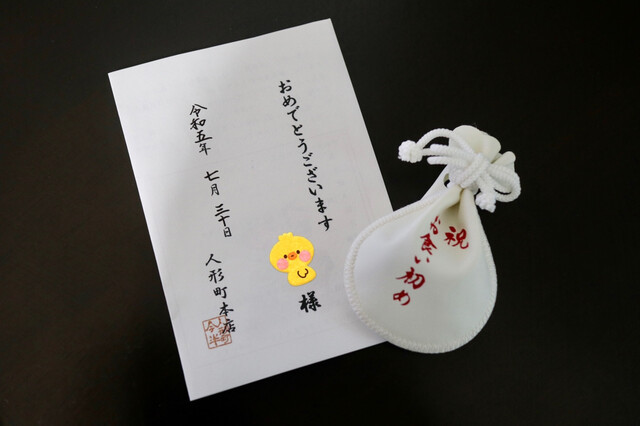 おめでとうございます
様
令和五年 七月 三十日 人形町本店
人形町
今半
祝
お食い初め